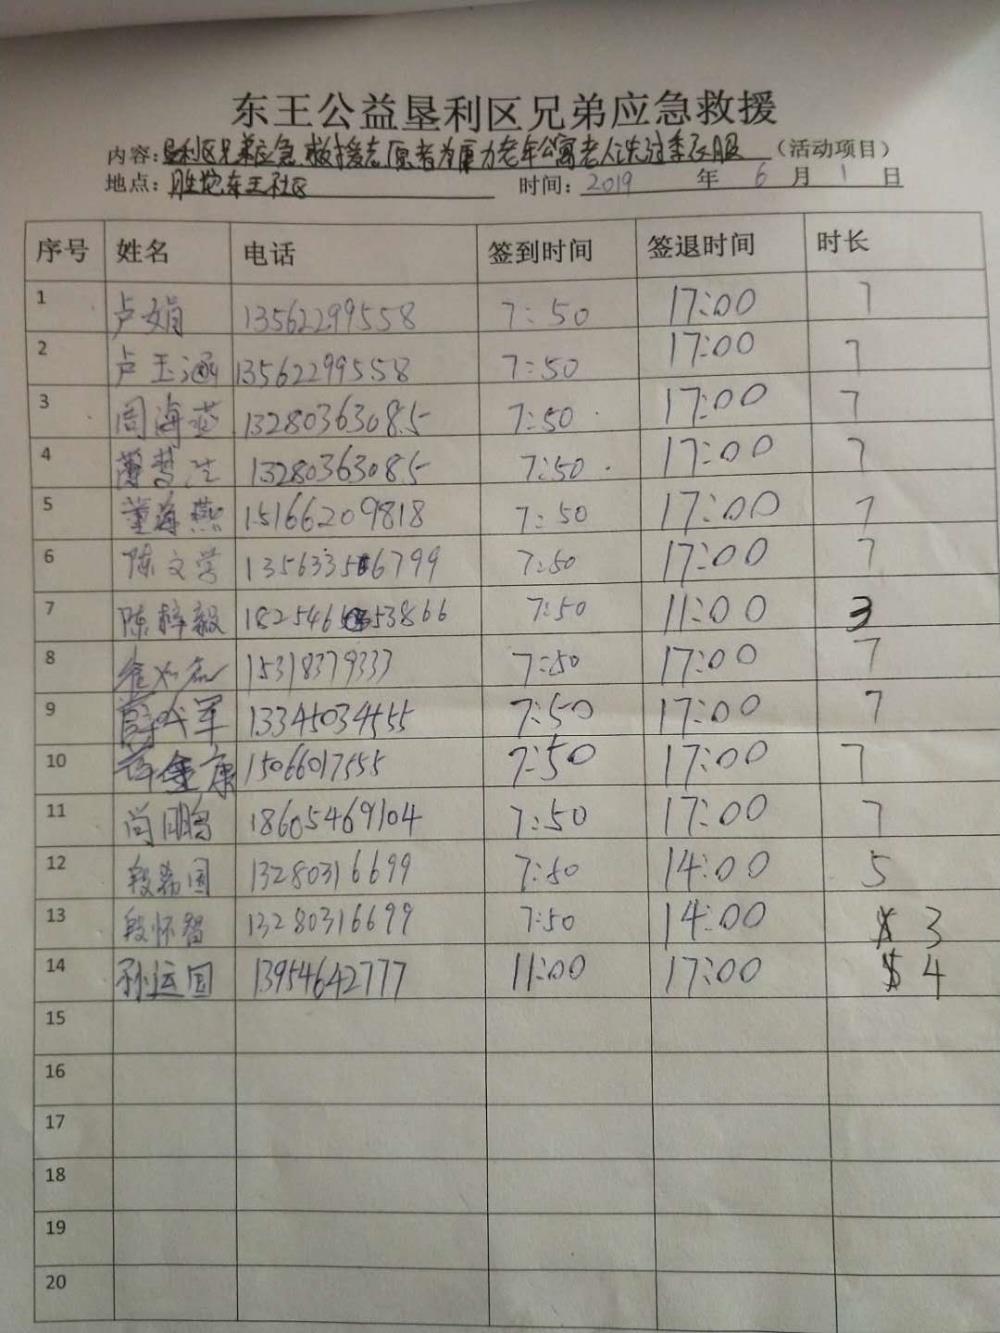 东王公益垦利区兄弟应急救援
内容：垦利区兄弟应急救援志愿者为康力老年公寓老人洗过季衣服（活动项目）
地点：胜坨东王社区 时间：2019 年 6 月 1 日
序号 姓名 电话 签到时间 签退时间 时长
1 卢娟 13562299558 7:50 17:00 7
2 卢玉涵 13562299558 7:50 17:00 7
3 周海燕 13280363085 7:50 17:00 7
4 13280363085 7:50 17:00 7
5 董海燕 15166209818 7:50 17:00 7
6 陈文学 13563356799 7:50 17:00 7
7 陈梓毅 18254653866 7:50 11:00 3
8 15318379333 7:50 17:00 7
9 13345034555 7:50 17:00 7
10 15066017555 7:50 17:00 7
11 尚鹏 18605469104 7:50 17:00 7
12 13280316699 7:50 14:00 5
13 段怀智 13280316699 7:50 14:00 3
14 孙运国 13954642777 11:00 17:00 4
15
16
17
18
19
20